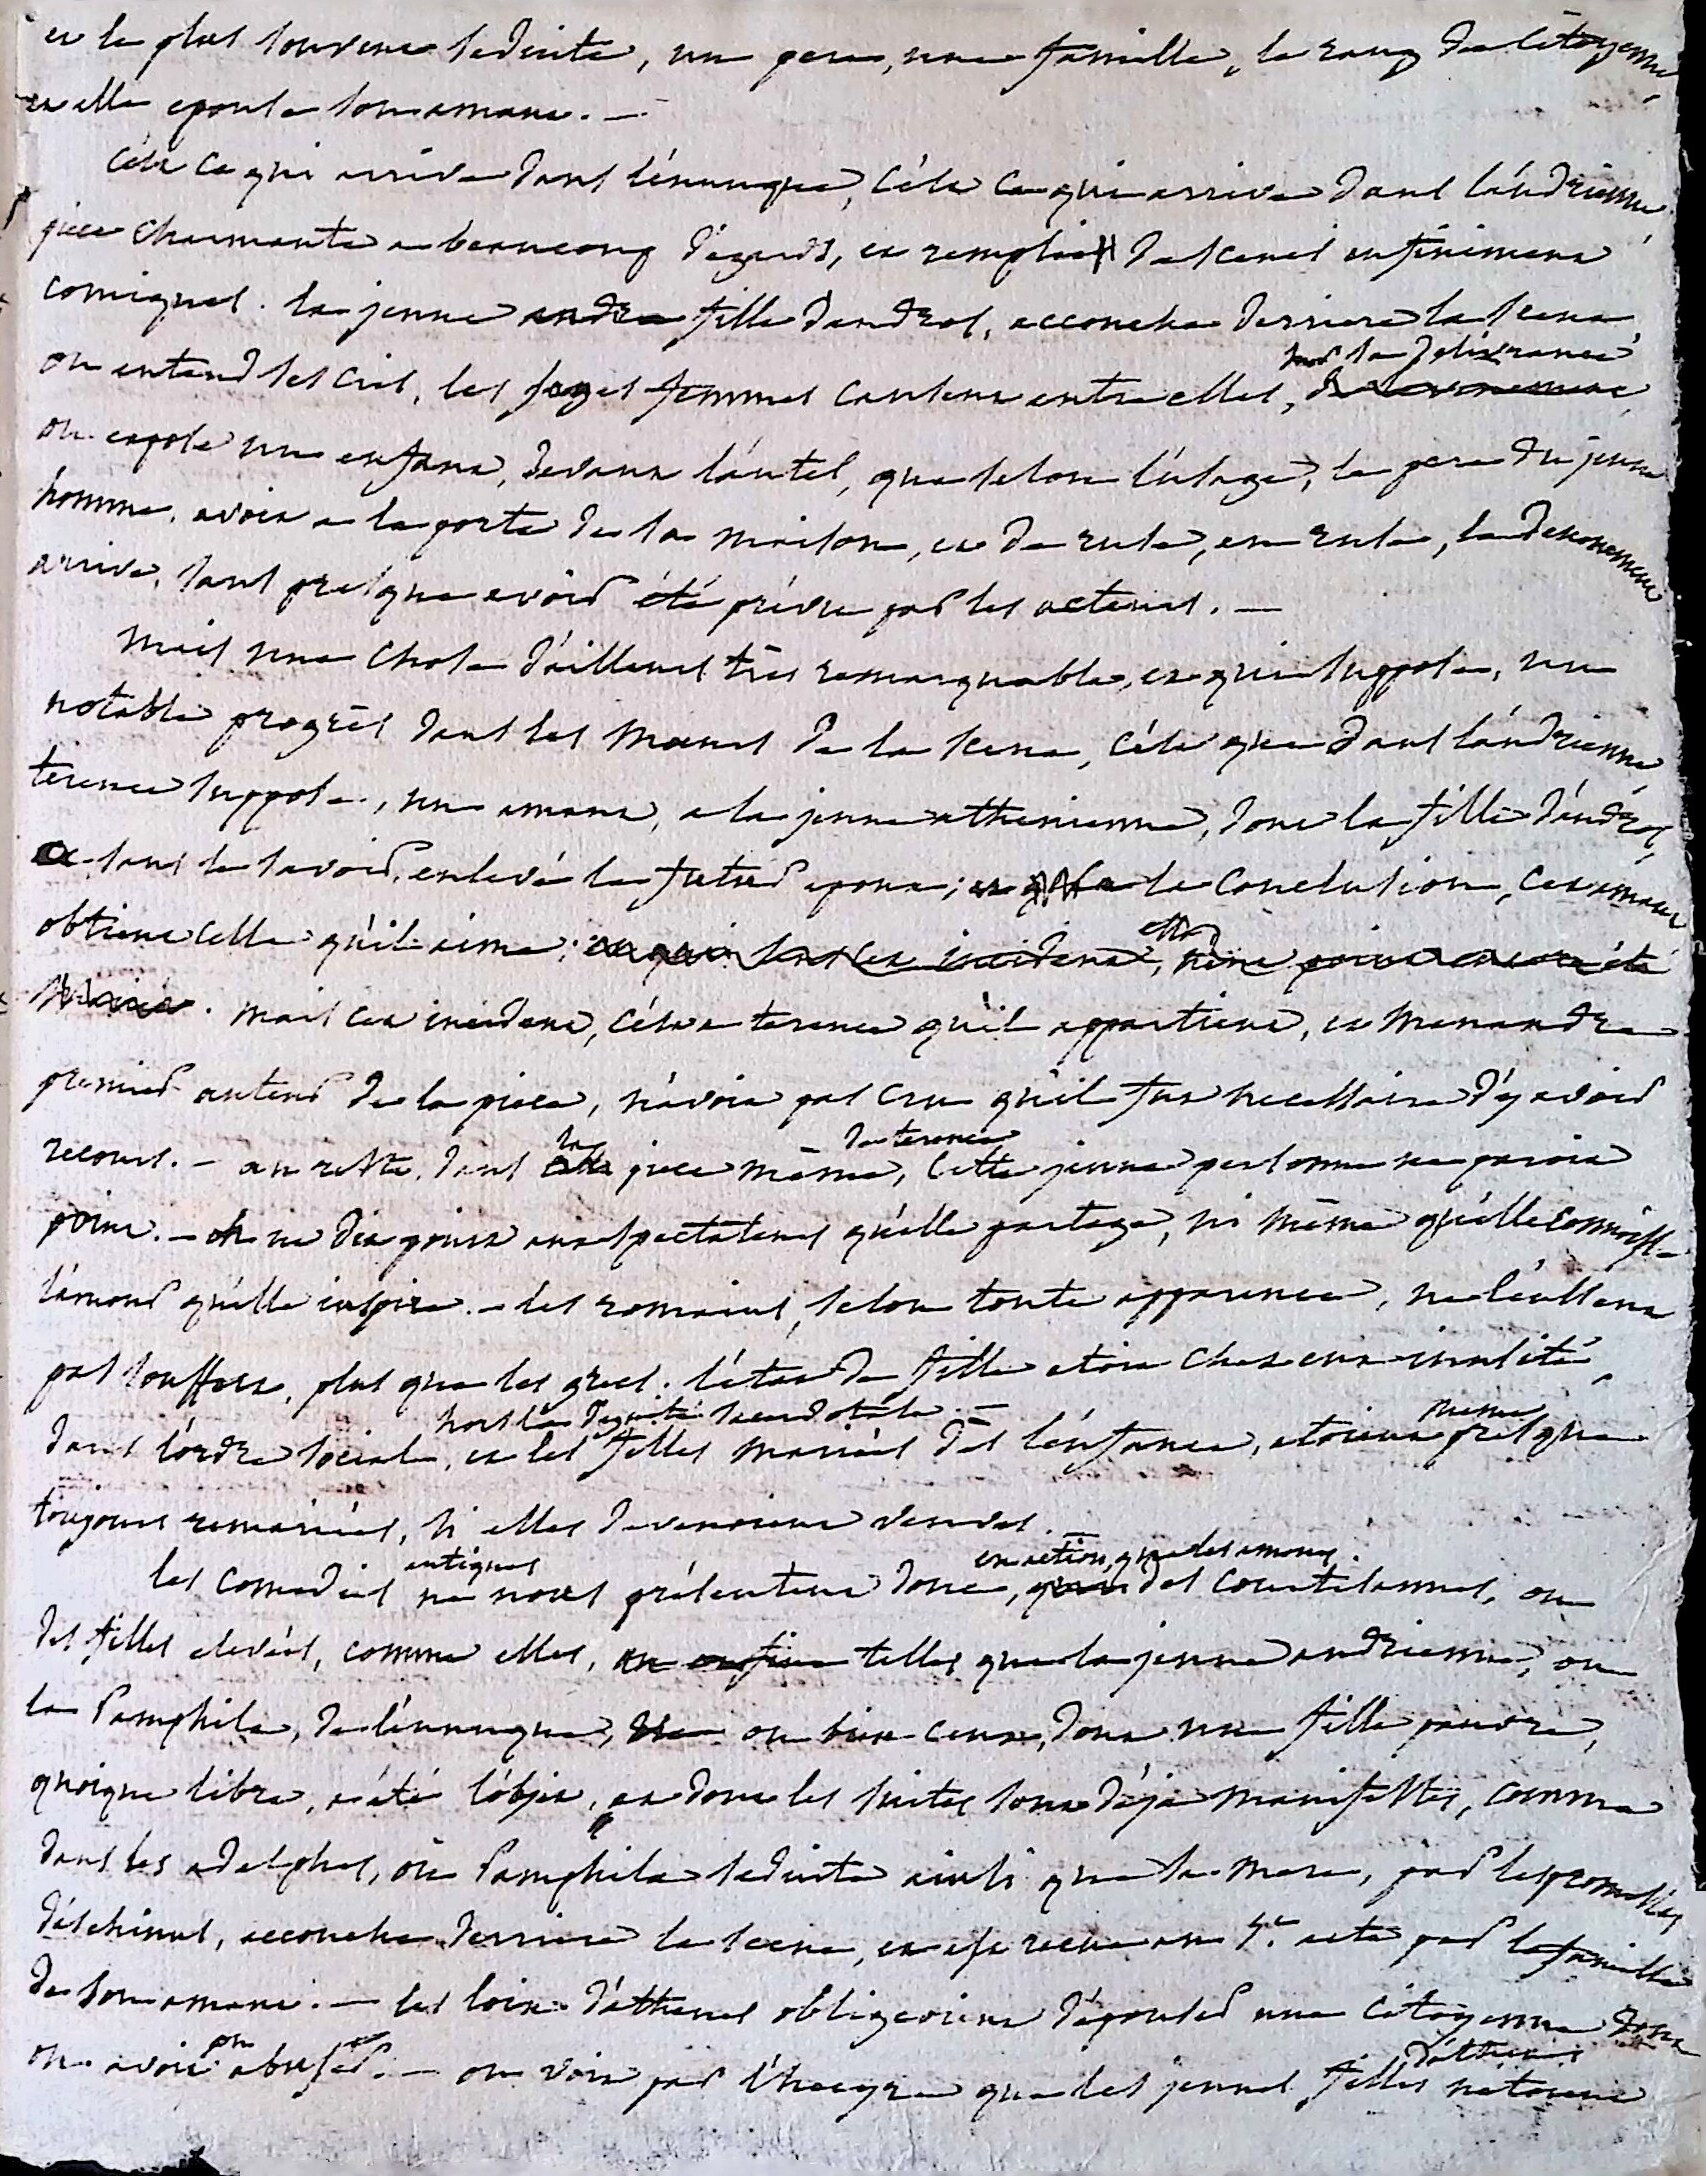 et le plus souvent seduite, un pere, une famille, le rang de citoyenne,
et elle epouse son amant. —
c'est ce qui arrive dans l'eunuque, c'est ce qui arrive dans l'andrienne,
piece charmante a beaucoup d'egards, et remplie de scenes infiniment
comiques. la jeune andre fille d'andros, accouche derriere la scene,
on entend ses cris, les sages femmes causent entre elles, sur sa delivrance,
on expose un enfant, devant l'autel, que selon l'usage, le pere du jeune
homme, avoit a la porte de sa maison, et de ruse, en ruse, le denouement
arrive, sans presque avoir été prévu par les acteurs. —
mais une chose d'ailleurs très remarquable, et qui suppose, un
notable progrès dans les moeurs de la scene, c'est que dans l'andrienne,
terence suppose, un amant, a la jeune athenienne, dont la fille d'andros,
a, sans le savoir, enlevé le futur epoux; et a la conclusion, cet amant
obtient celle qu'il aime; et qui sans cet incident, elle n'eut point encore été
. mais cet incident, c'est a terence qu'il appartient, et menandre
premier auteur de la piece, n'avoit pas cru qu'il fut necessaire d'y avoir
recours. — au reste, dans la piece même, de terence cette jeune personne ne paroit
point. — on ne dit point aux spectateurs qu'elle partage, ni même qu'elle connoisse
l'amour qu'elle inspire. — les romains, selon toute apparence, ne l'eussent
pas souffert, plus que les grecs. l'état de fille etoit chez eux inusité,
dans l'ordre social, hors la dignité sacerdotale. — et les filles mariées dès l'enfance, etoient même presque
toujours remariées, si elles devenoient veuves.
les comedies antiques ne nous présentent donc, en action, que les amours des courtisannes, ou
des filles elevées, comme elles, ou enfin telles que la jeune andrienne, ou
la Pamphile, de l'eunuque, ou bien ceux, dont une fille pauvre,
quoique libre, a été l'objet, et dont les suites sont déja manifestes, comme
dans les adelphes, où Pamphile seduite ainsi que sa mere, par les promesses
d'eschinus, accouche derriere la scene, et est recue au 5e. acte par la famille
de son amant. — les loix d'athenes obligeoient d'epouser une citoyenne dont
on avoit pu abuser. — on voit par l'hecyre que les jeunes filles d'athenes n'etoient